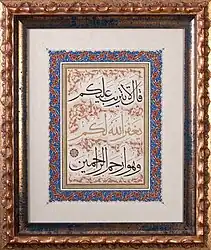 قال لا تثريب عليكم
يغفر الله لكم
وهو أرحم الراحمين